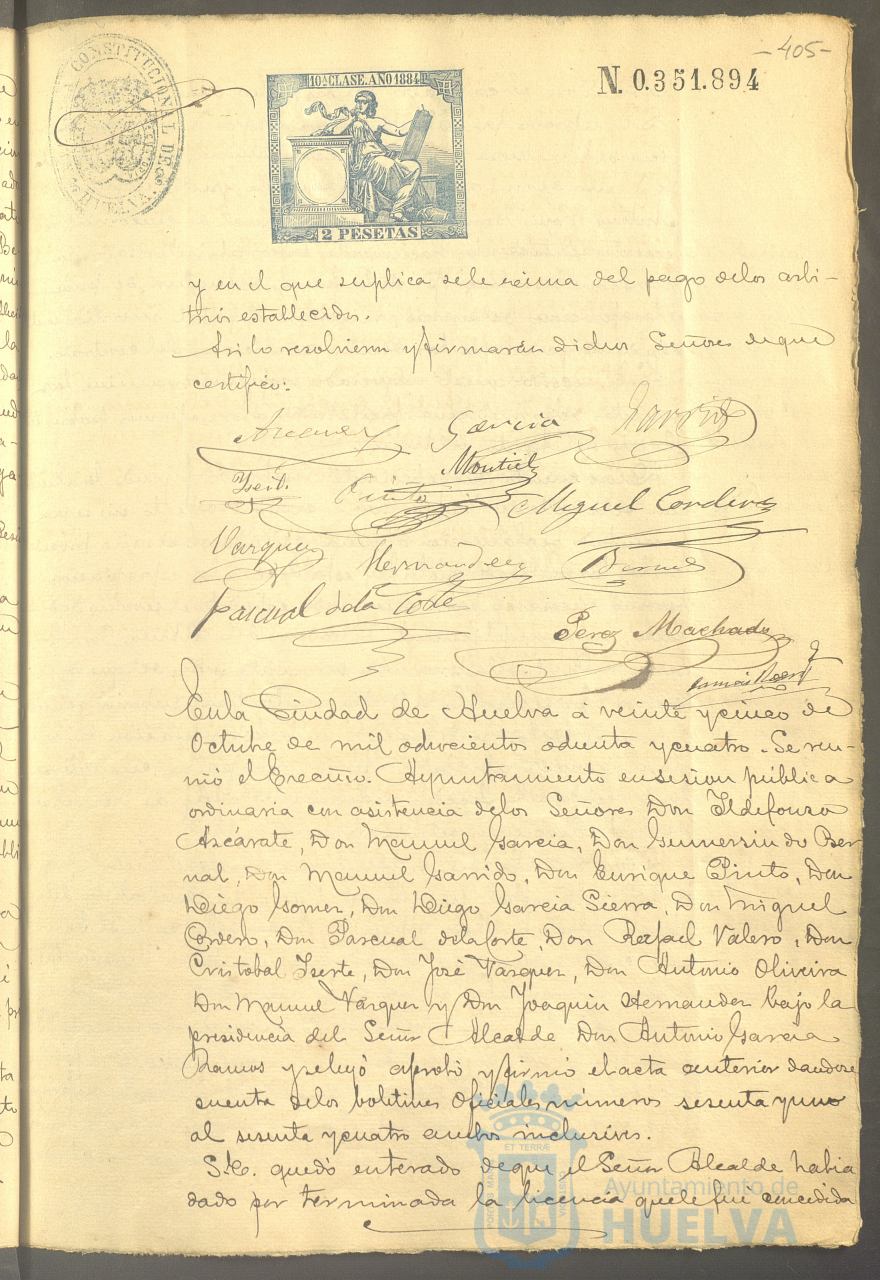 -405-
CONSTITUCIONAL DE
HUELVA
10ª CLASE. AÑO 1884
N. 0.351.894
2 PESETAS
y en el que suplica sele exima del pago delos arbi-
trios establecidos.
Asi lo resolvieron y firmarán dichos Señores deque
certifico:
Garcia
Garrido
Montiel
Pinto
Miguel Cordero
Vazquez
Hernandez
Bernal
Pascual dela Corte
Perez Machado
Enla Ciudad de Huelva á veinte ycinco de
Octubre de mil ochocientos ochenta ycuatro. Se reu-
nió el Excmo. Ayuntamiento ensesion pública
ordinaria con asistencia delos Señores Don Ildefonso
Azcárate, Don Manuel Garcia, Don Gumersindo Ber
nal, Don Manuel Garrido, Don Enrique Pinto, Don
Diego Gomez, Don Diego Garcia Sierra, Don Miguel
Cordero, Don Pascual delaCorte, Don Rafael Valero, Don
Cristobal Iserte, Don José Vazquez, Don Antonio Oliveira
Don Manuel Vazquez y Don Joaquin Hernandez bajo la
presidencia del Señor Alcalde Don Antonio Garcia
Ramos yseleyó aprobó yfirmó elacta anterior dandose
cuenta delos boletines Oficiales números sesenta yuno
al sesenta ycuatro ambos inclusives.
S.E. quedó enterado deque el Señor Alcalde habia
dado por terminada la licencia quele fué concedida
ET TERRÆ
Ayuntamiento de
HUELVA